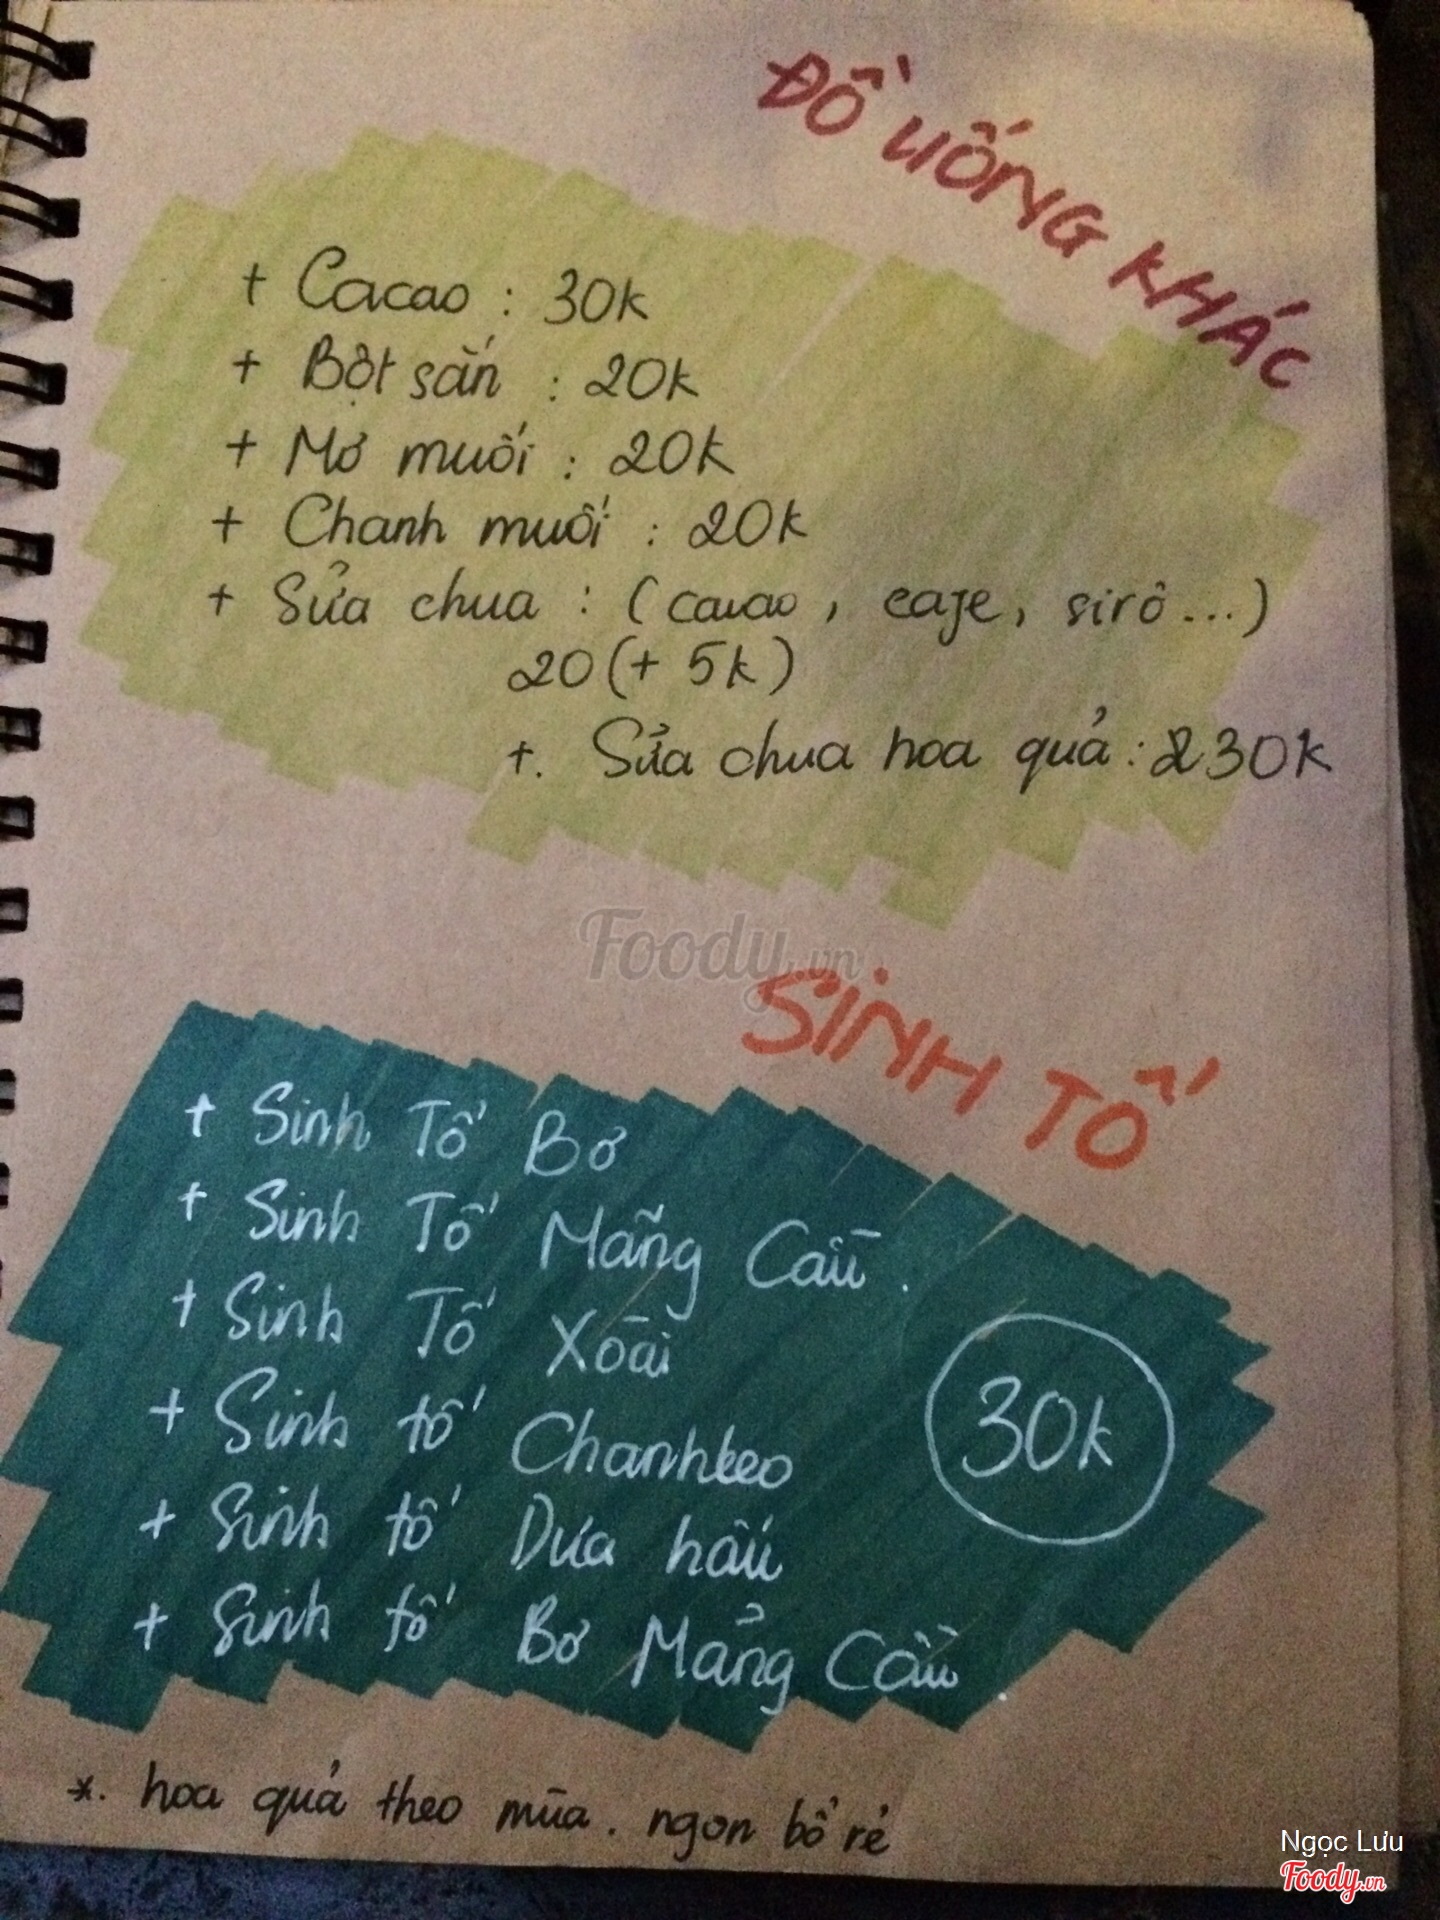 ĐỒ UỐNG KHÁC
+ Cacao : 30k
+ Bột sắn : 20k
+ Mơ muối : 20k
+ Chanh muối : 20k
+ Sửa chua : (cacao, cafe, sirô...)
20 (+ 5k)
+. Sửa chua hoa quả : 30k
Foody.vn
SINH TỐ
+ Sinh Tố Bơ
+ Sinh Tố Mãng Cầu.
+ Sinh Tố Xoài
+ Sinh tố Chanhleo
+ Sinh tố Dưa hấu
+ Sinh tố Bơ Mảng Cầu.
30k
*. hoa quả theo mùa. ngon bổ rẻ
Ngọc Lưu
Foody.vn